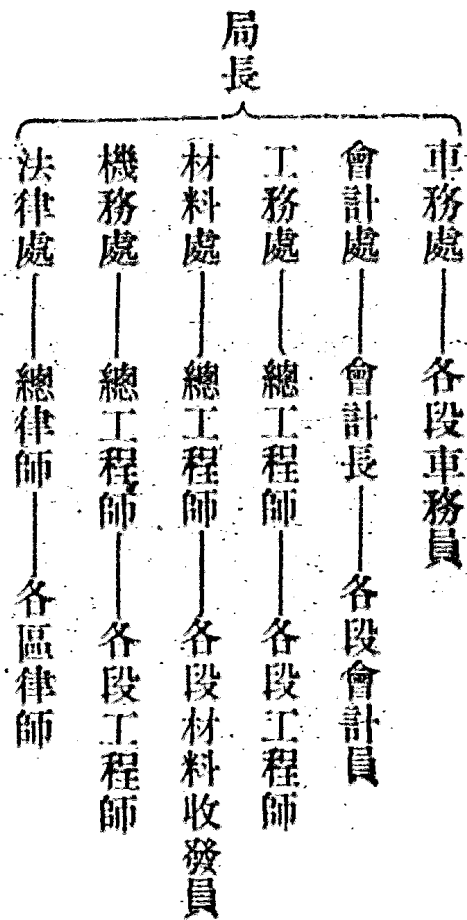 局長
車務處 各段車務員
會計處 會計長 各段會計員
工務處 總工程師 各段工程師
材料處 總工程師 各段材料收發員
機務處 總工程師 各段工程師
法律處 總律師 各區律師